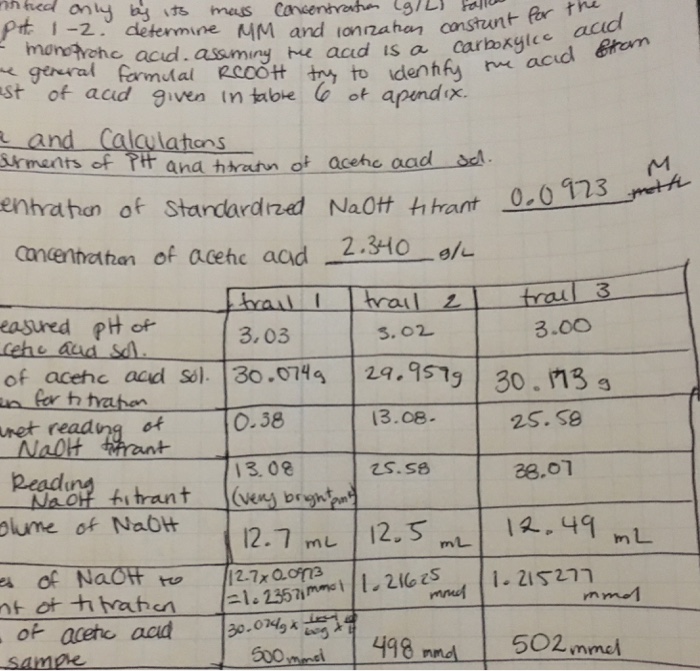 only by its mass concentration (g/L)
pH 1-2. determine MM and ionization constant for the
monotrotic acid. assuming the acid is a carboxylic acid
general formual RCOOH try to identify the acid from
st of acid given in table 6 of apendix.
and Calculations
surments of PH and titratin of acetic acid sol.
entration of standardized NaOH titrant 0.0973 M
concentration of acetic acid 2.340 g/L
trail 1 trail 2 trail 3
easured pH of
cetic acid sol. 3.03 3.02 3.00
of acetic acid sol. 30.074g 29.959g 30.173 g
en for titration
uret reading of 0.38 13.08. 25.58
NaOH titrant
Reading 13.08 25.58 38.07
NaOH titrant (very bright pink)
olume of NaOH 12.7 mL 12.5 mL 12.49 mL
es of NaOH to 12.7 x 0.0973 1.21625 mmol 1.215277 mmol
nt of titration =1.23571 mmol
of acetic acid 30.074g x
sample 500 mmol 498 mmol 502 mmol